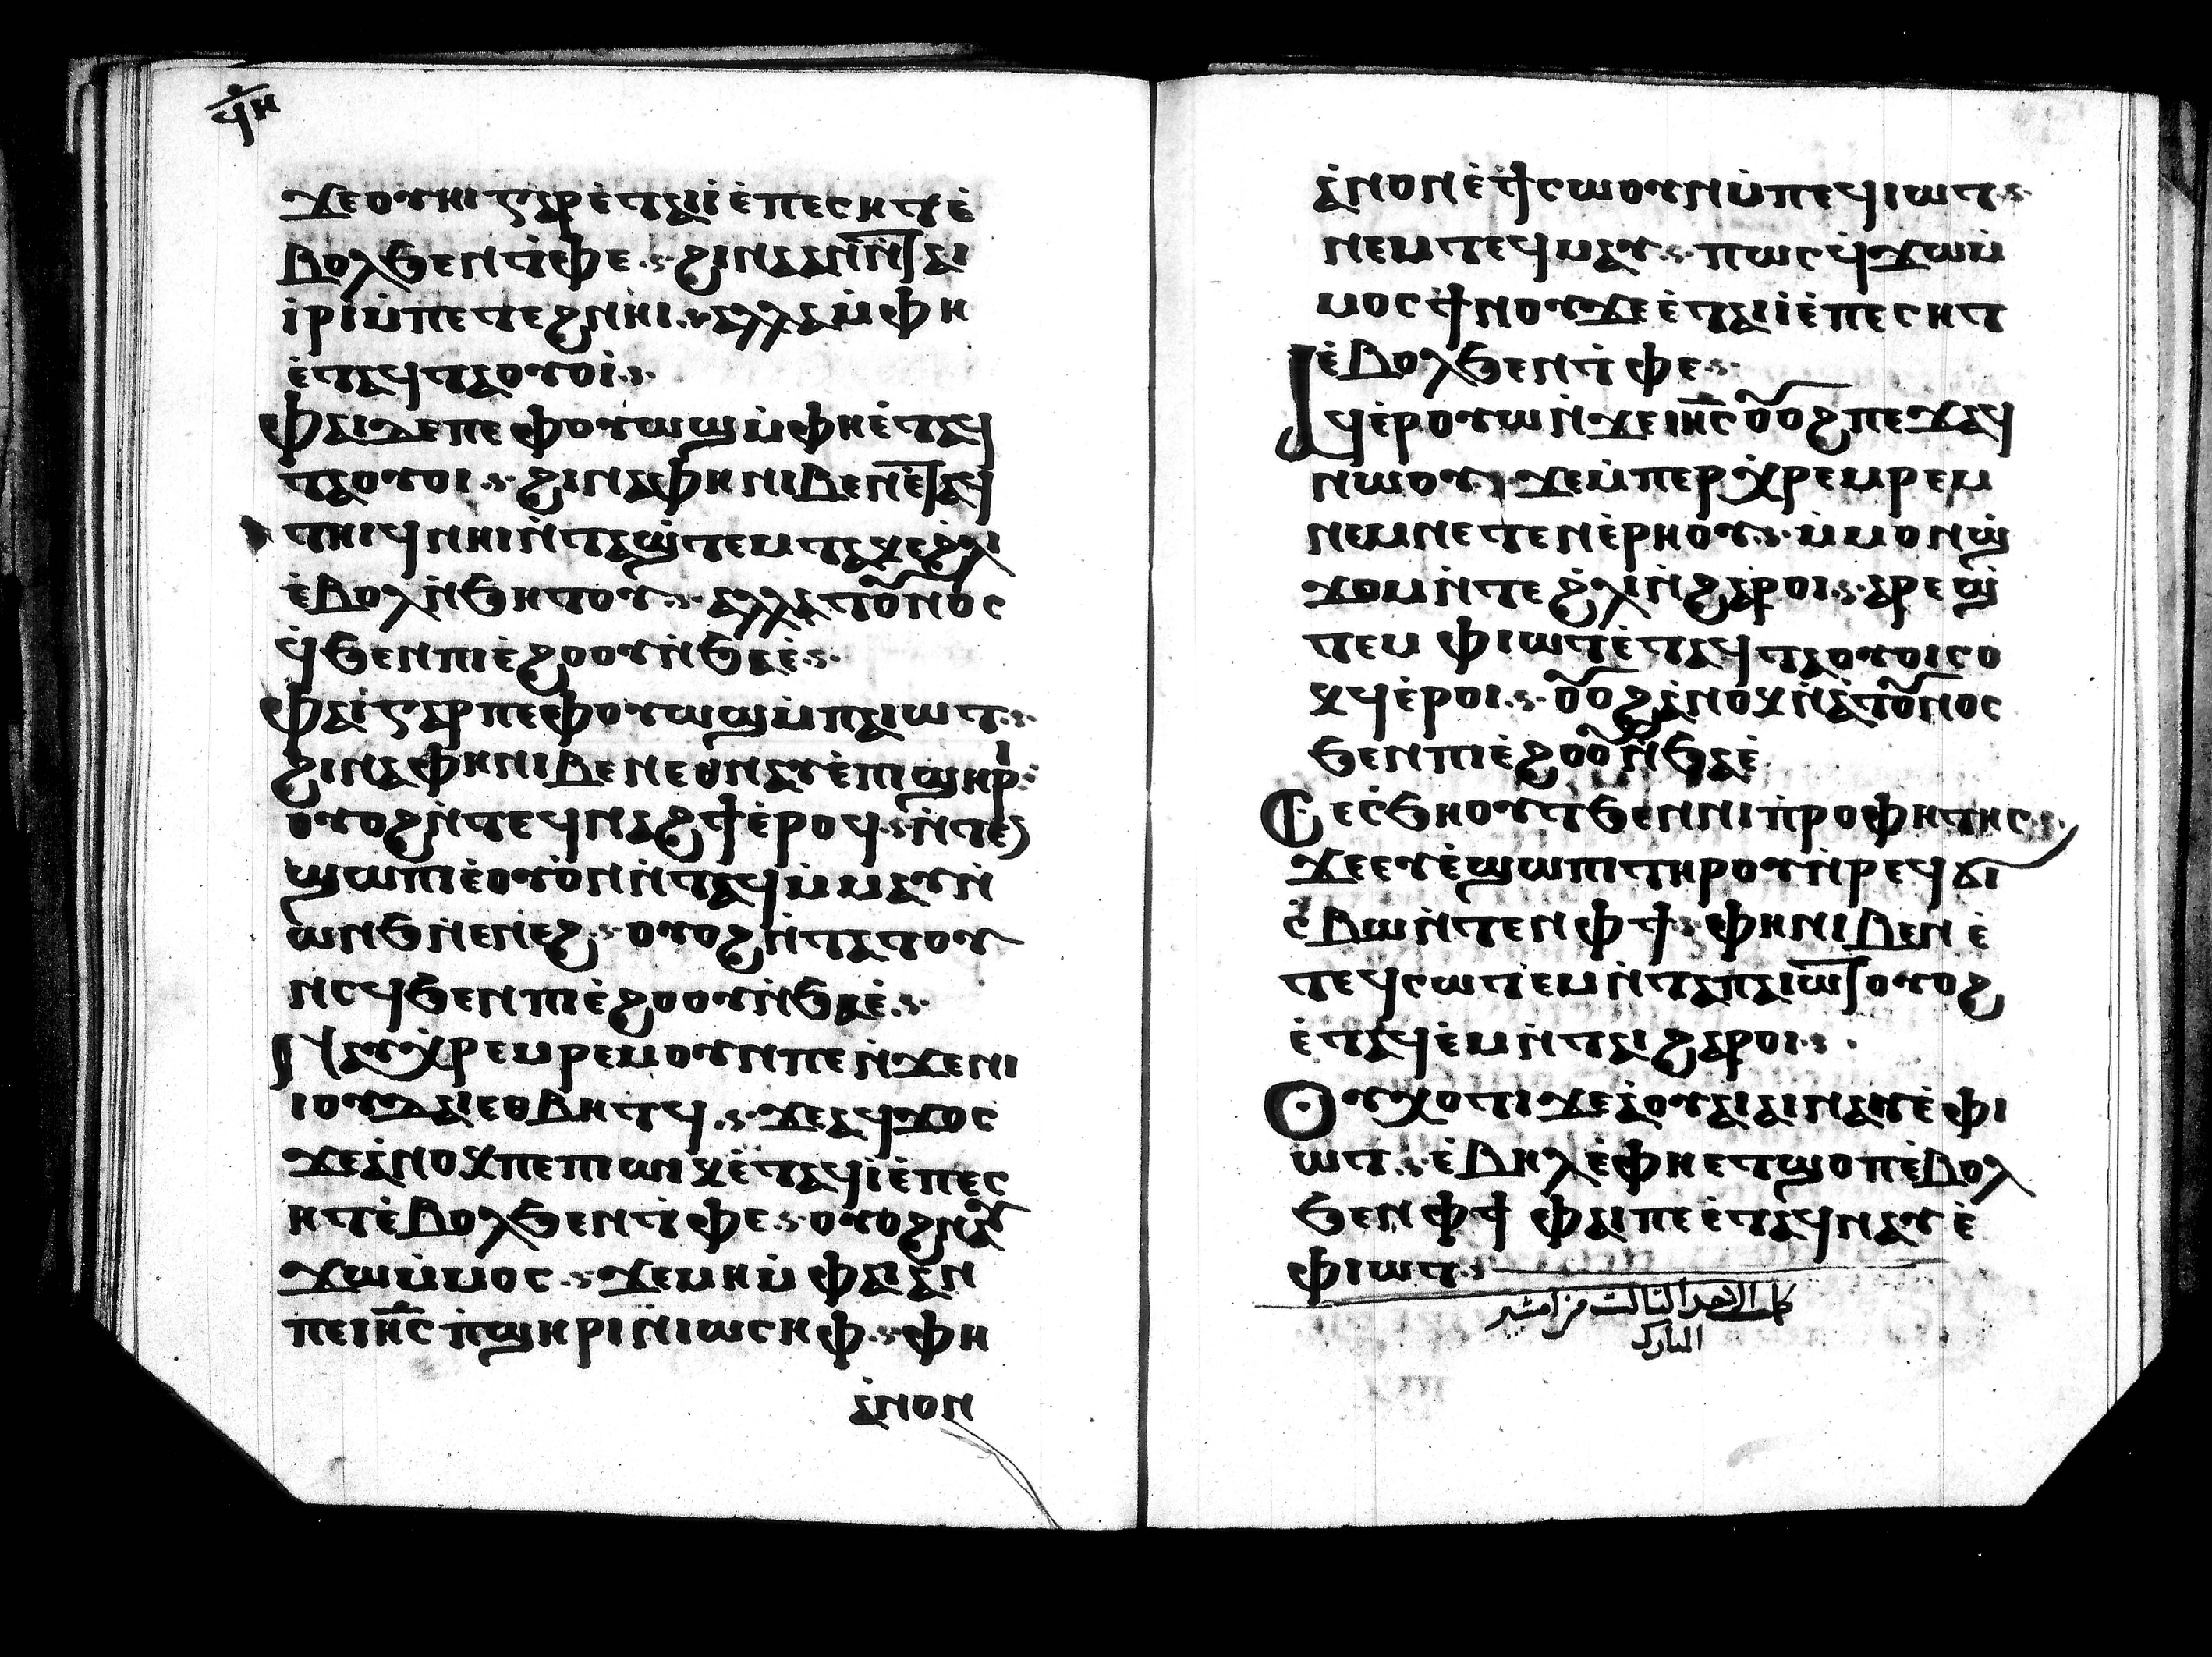 ϥ̅ⲏ̅
ϫⲉⲟⲩⲏⲓ ⲅⲁⲣ ⲉ̇ⲧⲁⲓⲓ̇ ⲉ̇ⲡⲉⲥⲏⲧ ⲉ̇
ⲃⲟⲗϧⲉⲛⲧ̇ⲫⲉ ϩⲓⲛⲁ ⲁⲛ ⲛ̇ⲧⲁⲓ
ⲓ̇ⲣⲓ ⲙ̇ⲡⲉⲧⲉϩⲛⲏⲓ ⲁⲗⲗⲁ ⲙ̇ⲫⲏ
ⲉ̇ⲧⲁϥⲧⲁⲟⲩⲟⲓ̇
ⲫⲁⲓ ϫⲉ ⲡⲉ ⲫⲟⲩⲱϣ ⲙ̇ⲫⲏⲉ̇ⲧⲁϥ
ⲧⲁⲟⲩⲟⲓ ϩⲓⲛⲁ ⲫⲏⲛⲓⲃⲉⲛ ⲉ̇ⲧⲁϥ
ⲧⲏⲓϥ ⲛⲏⲓ ⲛ̇ⲧⲁϣ̇ⲧⲉⲙⲧⲁⲕⲉϩ̇ⲗⲓ
ⲉ̇ⲃⲟⲗ ⲛ̇ϧⲏⲧⲟⲩ ⲁⲗⲗⲁ ⲧⲟⲩⲛⲟⲥ
ϥ̇ ϧⲉⲛⲡⲓⲉ̇ϩⲟⲟⲩ ⲛ̇ϧⲁⲉ̇
ⲫⲁⲓ̇ ⲅⲁⲣ ⲡⲉ ⲫⲟⲩⲱϣ ⲙ̇ⲡⲁⲓⲱⲧ
ϩⲓⲛⲁ ⲫⲏⲛⲓⲃⲉⲛ ⲉⲑⲛⲁⲩ ⲉ̇ⲡⲓϣⲏⲣⲓ
ⲟⲩⲟϩ ⲛ̇ⲧⲉϥⲛⲁϩϯ ⲉ̇ⲣⲟϥ ⲛ̇ⲧⲉϥ
ϣⲱⲡⲓ ⲉ̇ⲟⲩⲟⲛ ⲛ̇ⲧⲁϥ ⲙ̇ⲙⲁⲩ ⲛ̇
ⲱⲛϧ ⲛ̇ⲉⲛⲉϩ ⲟⲩⲟϩ ⲛ̇ⲧⲁⲧⲟⲩ
ⲛⲥϥ ϧⲉⲛⲡⲓⲉ̇ϩⲟⲟⲩ ⲛ̇ϧⲁⲉ̇
ⲛⲁⲩⲭⲣⲉⲙⲣⲉⲙ ⲟⲩⲛ ⲡⲉ ⲛ̇ϫⲉⲛⲓ
ⲓⲟⲩⲇⲁⲓ ⲉⲑⲃⲏⲧϥ ϫⲉⲁϥϫⲟⲥ
ϫⲉⲁ̇ⲛⲟⲕ ⲡⲉ ⲡⲓⲱⲓⲕ ⲉ̇ⲧⲁϥⲓ̇ ⲉ̇ⲡⲉⲥ
ⲏⲧ ⲉ̇ⲃⲟⲗϧⲉⲛⲧ̇ⲫⲉ ⲟⲩⲟϩ ⲛⲁⲩ
ϫⲱ ⲙ̇ⲙⲟⲥ ϫⲉⲙⲏ ⲙ̇ⲫⲁⲓ ⲁⲛ
ⲡⲉ ⲓⲏ̅ⲥ̅ ⲡ̇ϣⲏⲣⲓ ⲛ̇ⲓⲱⲥⲏⲫ ⲫⲏ
ⲁ̇ⲛⲟⲛ
ⲁ̇ⲛⲟⲛ ⲉ̇ⲧⲥⲱⲟⲩⲛ ⲙ̇ⲡⲉϥⲓⲱⲧ
ⲛⲉⲙ ⲧⲉϥⲙⲁⲩ ⲡⲱⲥ ϥ̇ϫⲱ ⲙ̇
ⲙⲟⲥ ϯⲛⲟⲩ ϫⲉ ⲉ̇ⲧⲁⲓⲓ̇ ⲉ̇ⲡⲉⲥⲏⲧ
ⲉ̇ⲃⲟⲗϧⲉⲛⲧ̇ⲫⲉ
ⲁϥⲉ̇ⲣⲟⲩⲱ ⲛ̇ϫⲉ ⲓⲏ̅ⲥ̅ ⲟⲩⲟϩ ⲡⲉϫⲁϥ
ⲛⲱⲟⲩ ϫⲉⲙ̇ⲡⲉⲣⲭ̇ⲣⲉⲙⲣⲉⲙ
ⲛⲉⲙ ⲛⲉⲧⲉⲛⲉ̇ⲣⲏⲟⲩ ⲙ̇ⲙⲟⲛ ϣ̇
ϫⲟⲙ ⲛ̇ⲧⲉ ϩ̇ⲗⲓ ⲛ̇ϩⲁⲣⲟⲓ ⲁⲣⲉϣ̇
ⲧⲉⲙ ⲫⲓⲱⲧ ⲉ̇ⲧⲁϥⲧⲁⲟⲩⲟⲓ ⲥⲟ
ⲕϥ ⲉ̇ⲣⲟⲓ ⲟⲩⲟϩ ⲁ̇ⲛⲟⲕ ⲛ̇ⲁⲧⲟⲩⲛⲟⲥ
ϧⲉⲛⲡⲓⲉ̇ϩⲟⲟⲩ ⲛ̇ϧⲁⲉ̇
ⲥⲉⲥ̇ϧⲏⲟⲩⲧ ϧⲉⲛⲛⲓⲡ̇ⲣⲟⲫⲏⲧⲏⲥ
ϫⲉⲉⲩⲉ̇ϣⲱⲡⲓ ⲧⲏⲣⲟⲩ ⲛ̇ⲣⲉϥϭⲓ
ⲥ̇ⲃⲱ ⲛ̇ⲧⲉⲛ ⲫϯ ⲫⲏⲛⲓⲃⲉⲛ ⲉ̇
ⲧⲉϥⲥⲱⲧⲉⲙ ⲛ̇ⲧⲁⲡⲁⲓⲱⲧ ⲟⲩⲟϩ
ⲉ̇ⲧⲁϥⲉ̇ⲙⲓ ⲛ̇ⲧⲁⲓ ϩⲁⲣⲟⲓ
ⲟⲩⲭⲟⲧⲓ ϫⲉⲁ̇ⲟⲩⲁⲓ ⲁⲓⲛⲁⲩ ⲉ̇ⲫⲓ
ⲱⲧ ⲉ̇ⲃⲏⲗ ⲉ̇ⲫⲏⲉⲧϣⲟⲡ ⲉ̇ⲃⲟⲗ
ϧⲉⲛ ⲫϯ ⲫⲁⲓ ⲡⲉ ⲉ̇ⲧⲁϥⲛⲁⲩ ⲉ̇
ⲫⲓⲱⲧ
كمل الاحد الثالث من امشير
المبارك